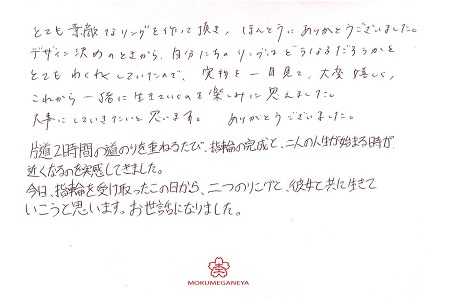 とても素敵なリングを作って頂き、ほんとうにありがとうございました。
デザイン決めのときから、自分たちのリングはどうなるだろうかと
とてもわくわくしていたので、実物を一目見て、大変嬉しく、
これから一緒に生きていくのを楽しみに思えました。
大事にしていきたいと思います。 ありがとうございました。
片道2時間の道のりを重ねるたび、指輪の完成と、二人の人生が始まる時が、
近くなるのを実感してきました。
今日、指輪を受け取ったこの日から、二つのリングと、彼女と共に生きて
いこうと思います。お世話になりました。
MOKUMEGANEYA